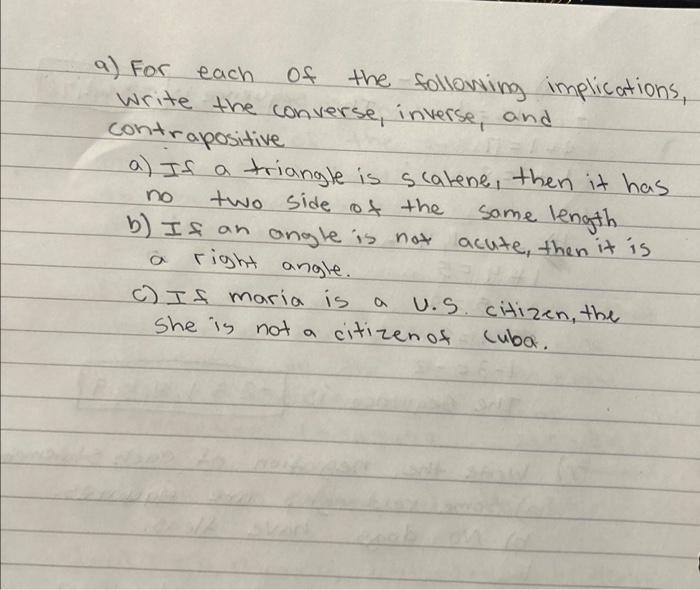 a) For each of the following implications,
write the converse, inverse, and
contrapositive
a) If a triangle is scalene, then it has
no two side of the same length
b) If an angle is not acute, then it is
a right angle.
c) If maria is a U.S. citizen, the
she is not a citizen of Cuba.